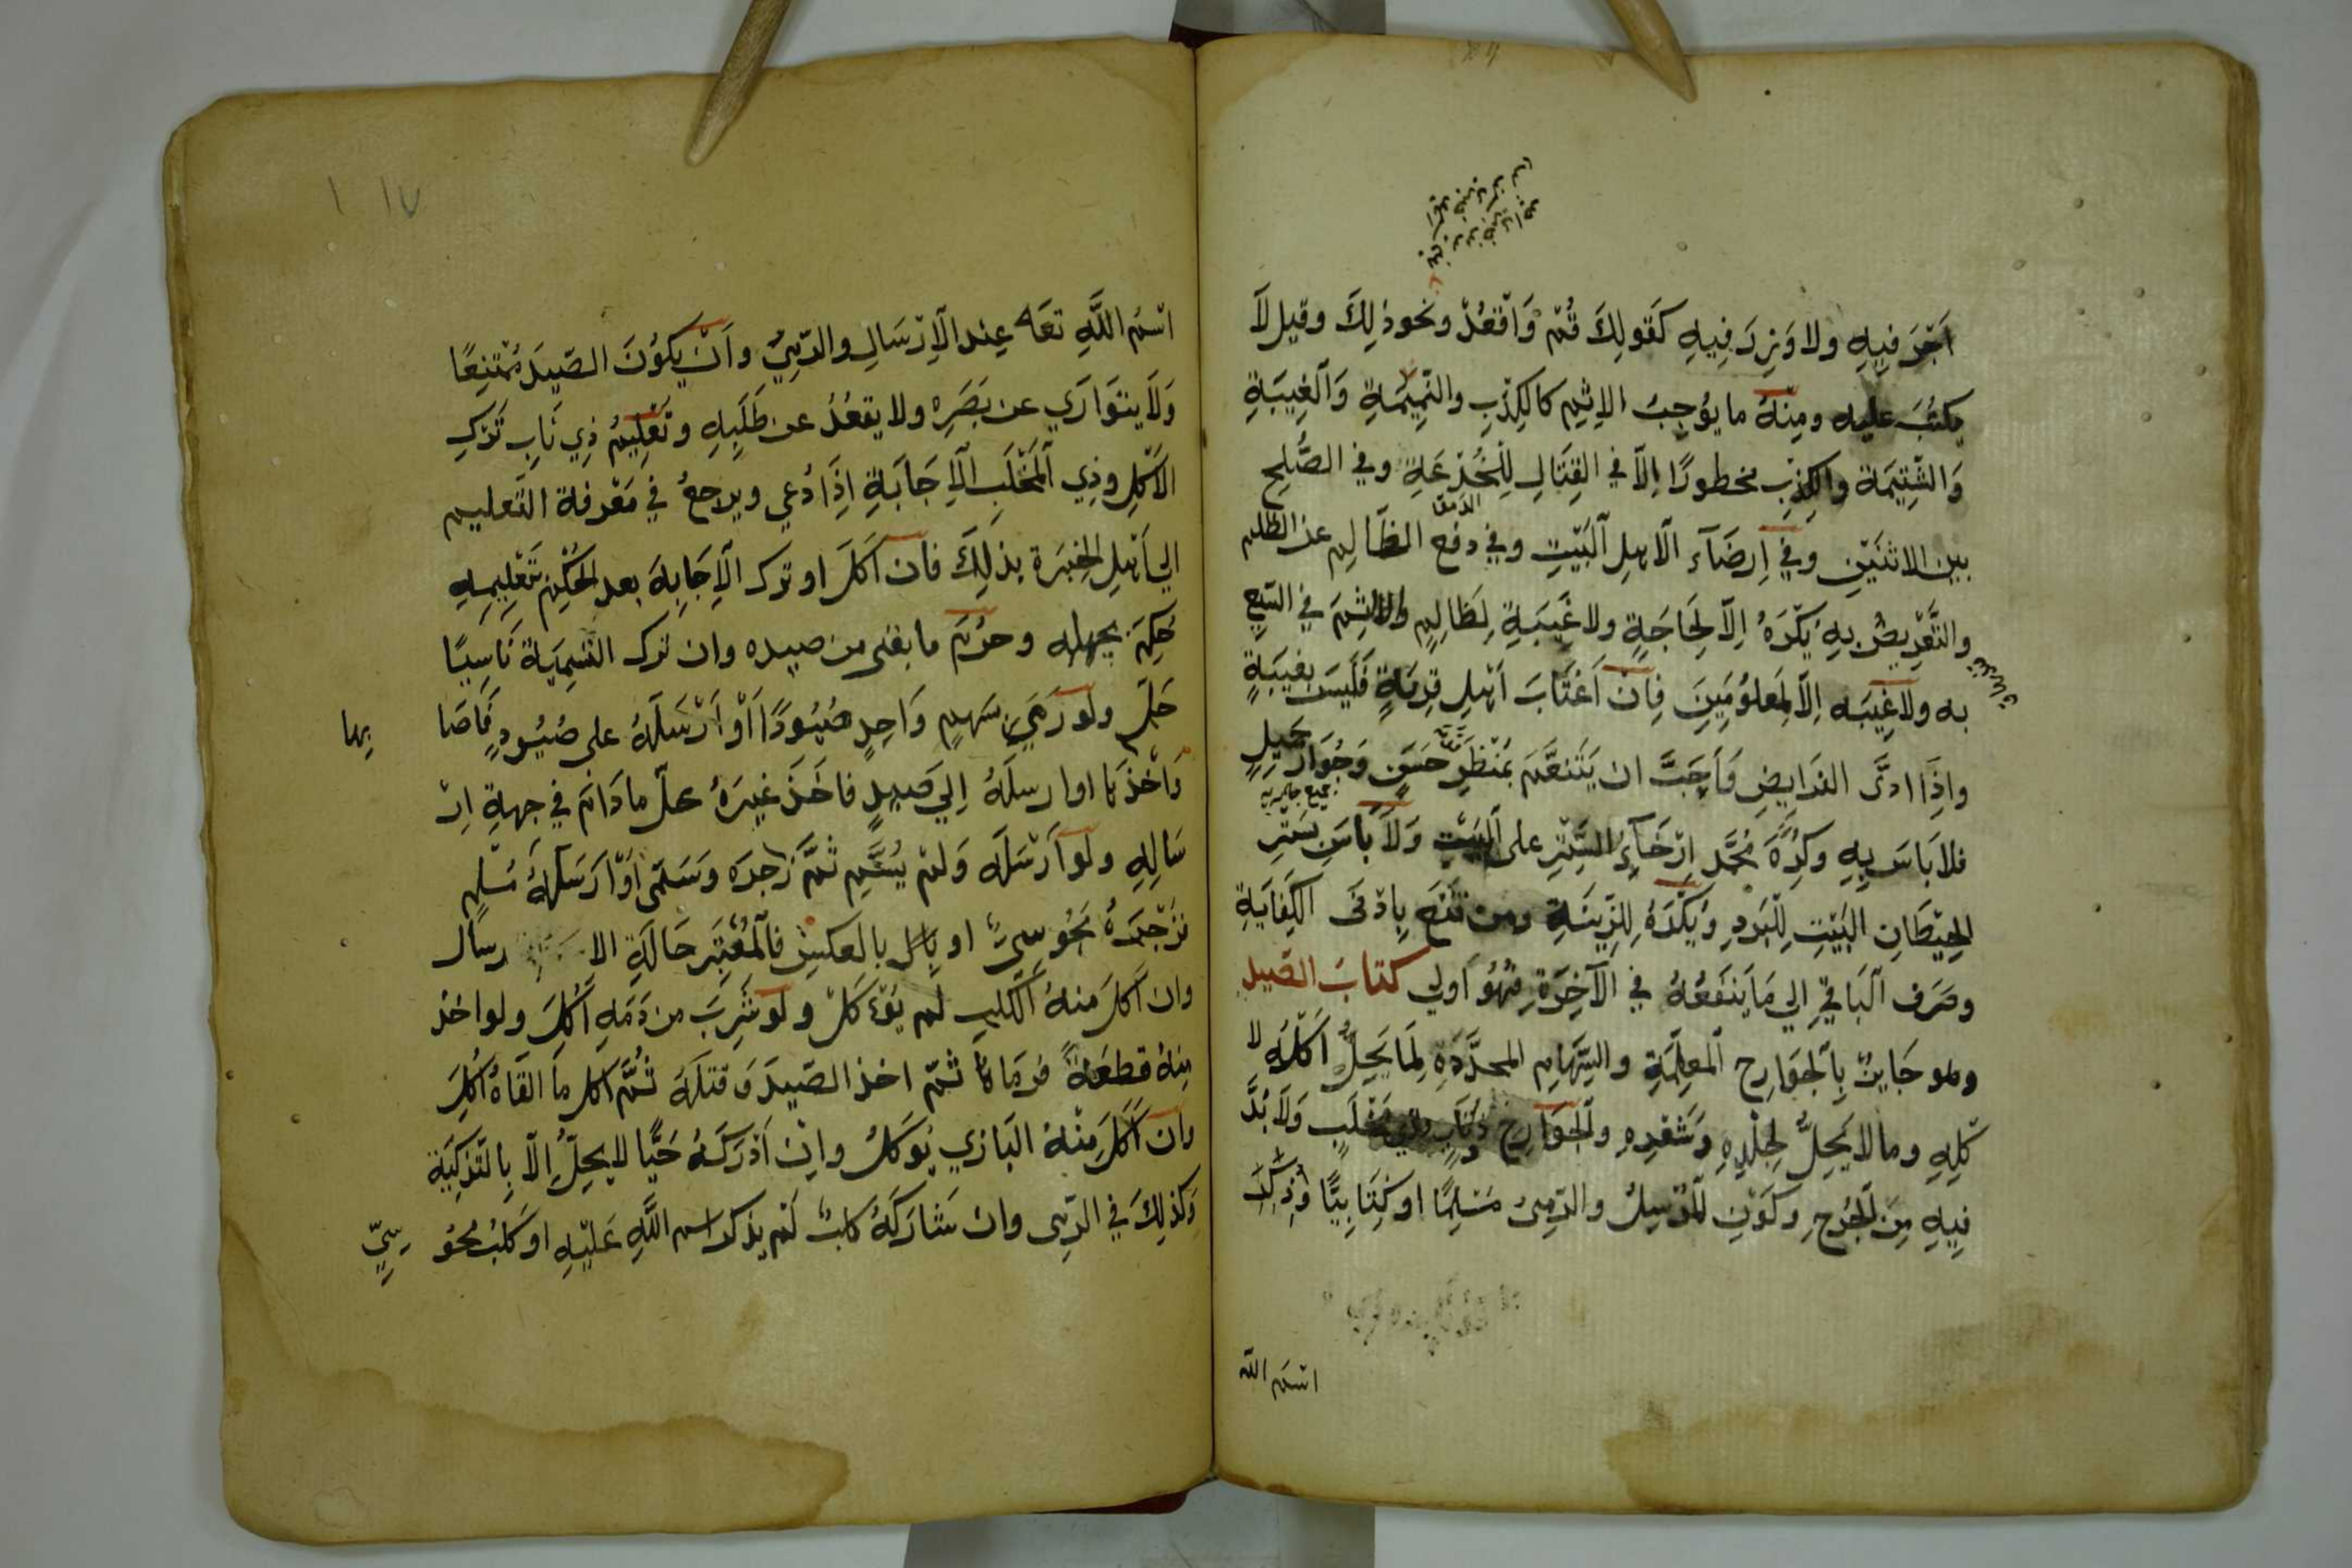 اَجْرَ فِيهِ ولا وَزِرَ فِيهِ كَقَولِكَ قُمْ وَاقْعُدْ ونحو ذلِكَ وقيل لَا
يكتُبَ عليه ومِنْهُ ما يوُجِبُ الاِثم كالكِذبِ والنَّمِيمَةِ وَالْغِيبَةِ
وَالشَّتِيمَة والكِذب محظورًا اِلّا في القِتَالِ لِلْخُدْعَةِ وفي الصُّلحِ
بين الاثنَيْنِ وَفي اِرضَآءِ الْاَهلِ الْبَيْتِ وفي دفع الظَّالِم عن الظلم
والتَّعْرِيضُ بِهِ يَكْرَهُ اِلّا لِحَاجَةٍ ولا غَيبَةِ لِظَالِمٍ والاثم في السَّعِ
به ولا غِيبَه اِلّا لِمَعلوُمِينَ فِانْ اَغتَابَ اَهْلِ قِريَةٍ فَلَيسَ بغيبَةٍ
واِذَا ادَّى الفرَايضِ وَاَحَبَّ ان يَتَنعَّمَ بَمَنْظَرٍ حَسَنٍ وَجُوَارٍ جَميلٍ
فلا بَاسَ بِهِ وكرِهَ مُحَمَّد اِرْخَآءِ السِّتْرِ على البَيْتِ وَلَا بَاسَ بسَتْرِ
الحِيْطَانِ البَيْتِ لِلْبَردِ وَيَكْرَهُ لِلزِّينَةِ ومن قَنَعَ بِادْنَى الكِفَايَةِ
وصَرَف الْبَاقي اِلي مَا يَنفَعُهُ في الآخِرَةِ فَهُوَ اَولي كتابَ الصَّيد
وهو جَايزٌ بِالْجَوَارِحِ الْمعلَّمَةِ والسِّهَامِ المحدَّدَةِ لِمَا يَحِلُّ اَكْلُهُ لا
كَلِهِ وما لا يَحِلُّ لِجلْدِهِ وَشَعْرِهِ والْجوَارِح ذُو نَابٍ وذي مَخْلَبٍ وَلَا بُدَّ
فِيهِ مِنَ الْجُرحِ وكَوْنِ المُرْسِلُ والرَّمِيُ مُسْلِمًا او كِتَابِيًّا وَذِكْرِ
اسْم الله
اسْم اللَّهِ تعَه عِند الْاِرْسَالِ والرَّمِيْ وانْ يَكوُنَ الصَّيدَ مُمْتَنِعًا
وَلَا يتوَارَي عن بَصَرِهِ ولا يقعُدُ عن طَلَبِهِ وتَعْلِيمُ ذِي نَابٍ تَرْكِ
الاَكْلِ وذِي الْمَخْلَبِ الْاِجَابَةِ اِذَا دُعِي ويرجعُ في مَعْرفة التَّعليم
الي اَهْلِ الخِبْرَة بِذلِكَ فان اَكَلَ او ترك الْاِجَابةَ بعد الحُكْمِ بتَعْلِيمِهِ
حَكمَ بجهله وحرُمَ ما بقى من صيده وان ترك التسمِيَة نَاسِيًا
حَلَّ ولو رَمَي بسَهمٍ وَاحِدٍ صُيُودًا اَوْ اَرْسَلَهُ على صُيُودٍ فَاَصَا بها
وَاَخْذَهَا او ارسلَهُ اِلي صَيدٍ فاخَذَ غيرَهُ حلَّ ما دَامَ في جهةِ اِرْ
سَالِهِ ولو اَرْسَلَه وَلمْ يُسَمِّ ثمَّ زَجرَه وَسَمَّى اَوْ اَرَسَلَهُ مُسْلم
فزَجَرَهُ مَجُوسِيٌّ او بل بالعكسِ فالْمُعْتَبَر حَالَةِ الا رسال
وان اَكَلَ مِنهُ الْكَلبِ لم يُؤءكَلْ ولو شَرِبَ من دَمَهِ اُكِلَ ولو اخذ
مِنهُ قطعَةً فرَمَاهَا ثمّ اخذ الصَّيدَ وَقتلَهُ ثُمَّ اكل ما اَلقَاهُ اُكِلَ
وان اَكَلَ مِنْهُ البَازي يُوكلُ وانْ اَدْرَكَهُ حَيًّا لا يحِلُّ اِلّا بِالتَّذكِيَة
وَكذلِكَ في الرَّمِى وانْ شَارَكَهُ كلبٌ لَمْ يذكر اسم اللَّهِ عَلَيْهِ او كَلبُ مَجُو سِيٍّ